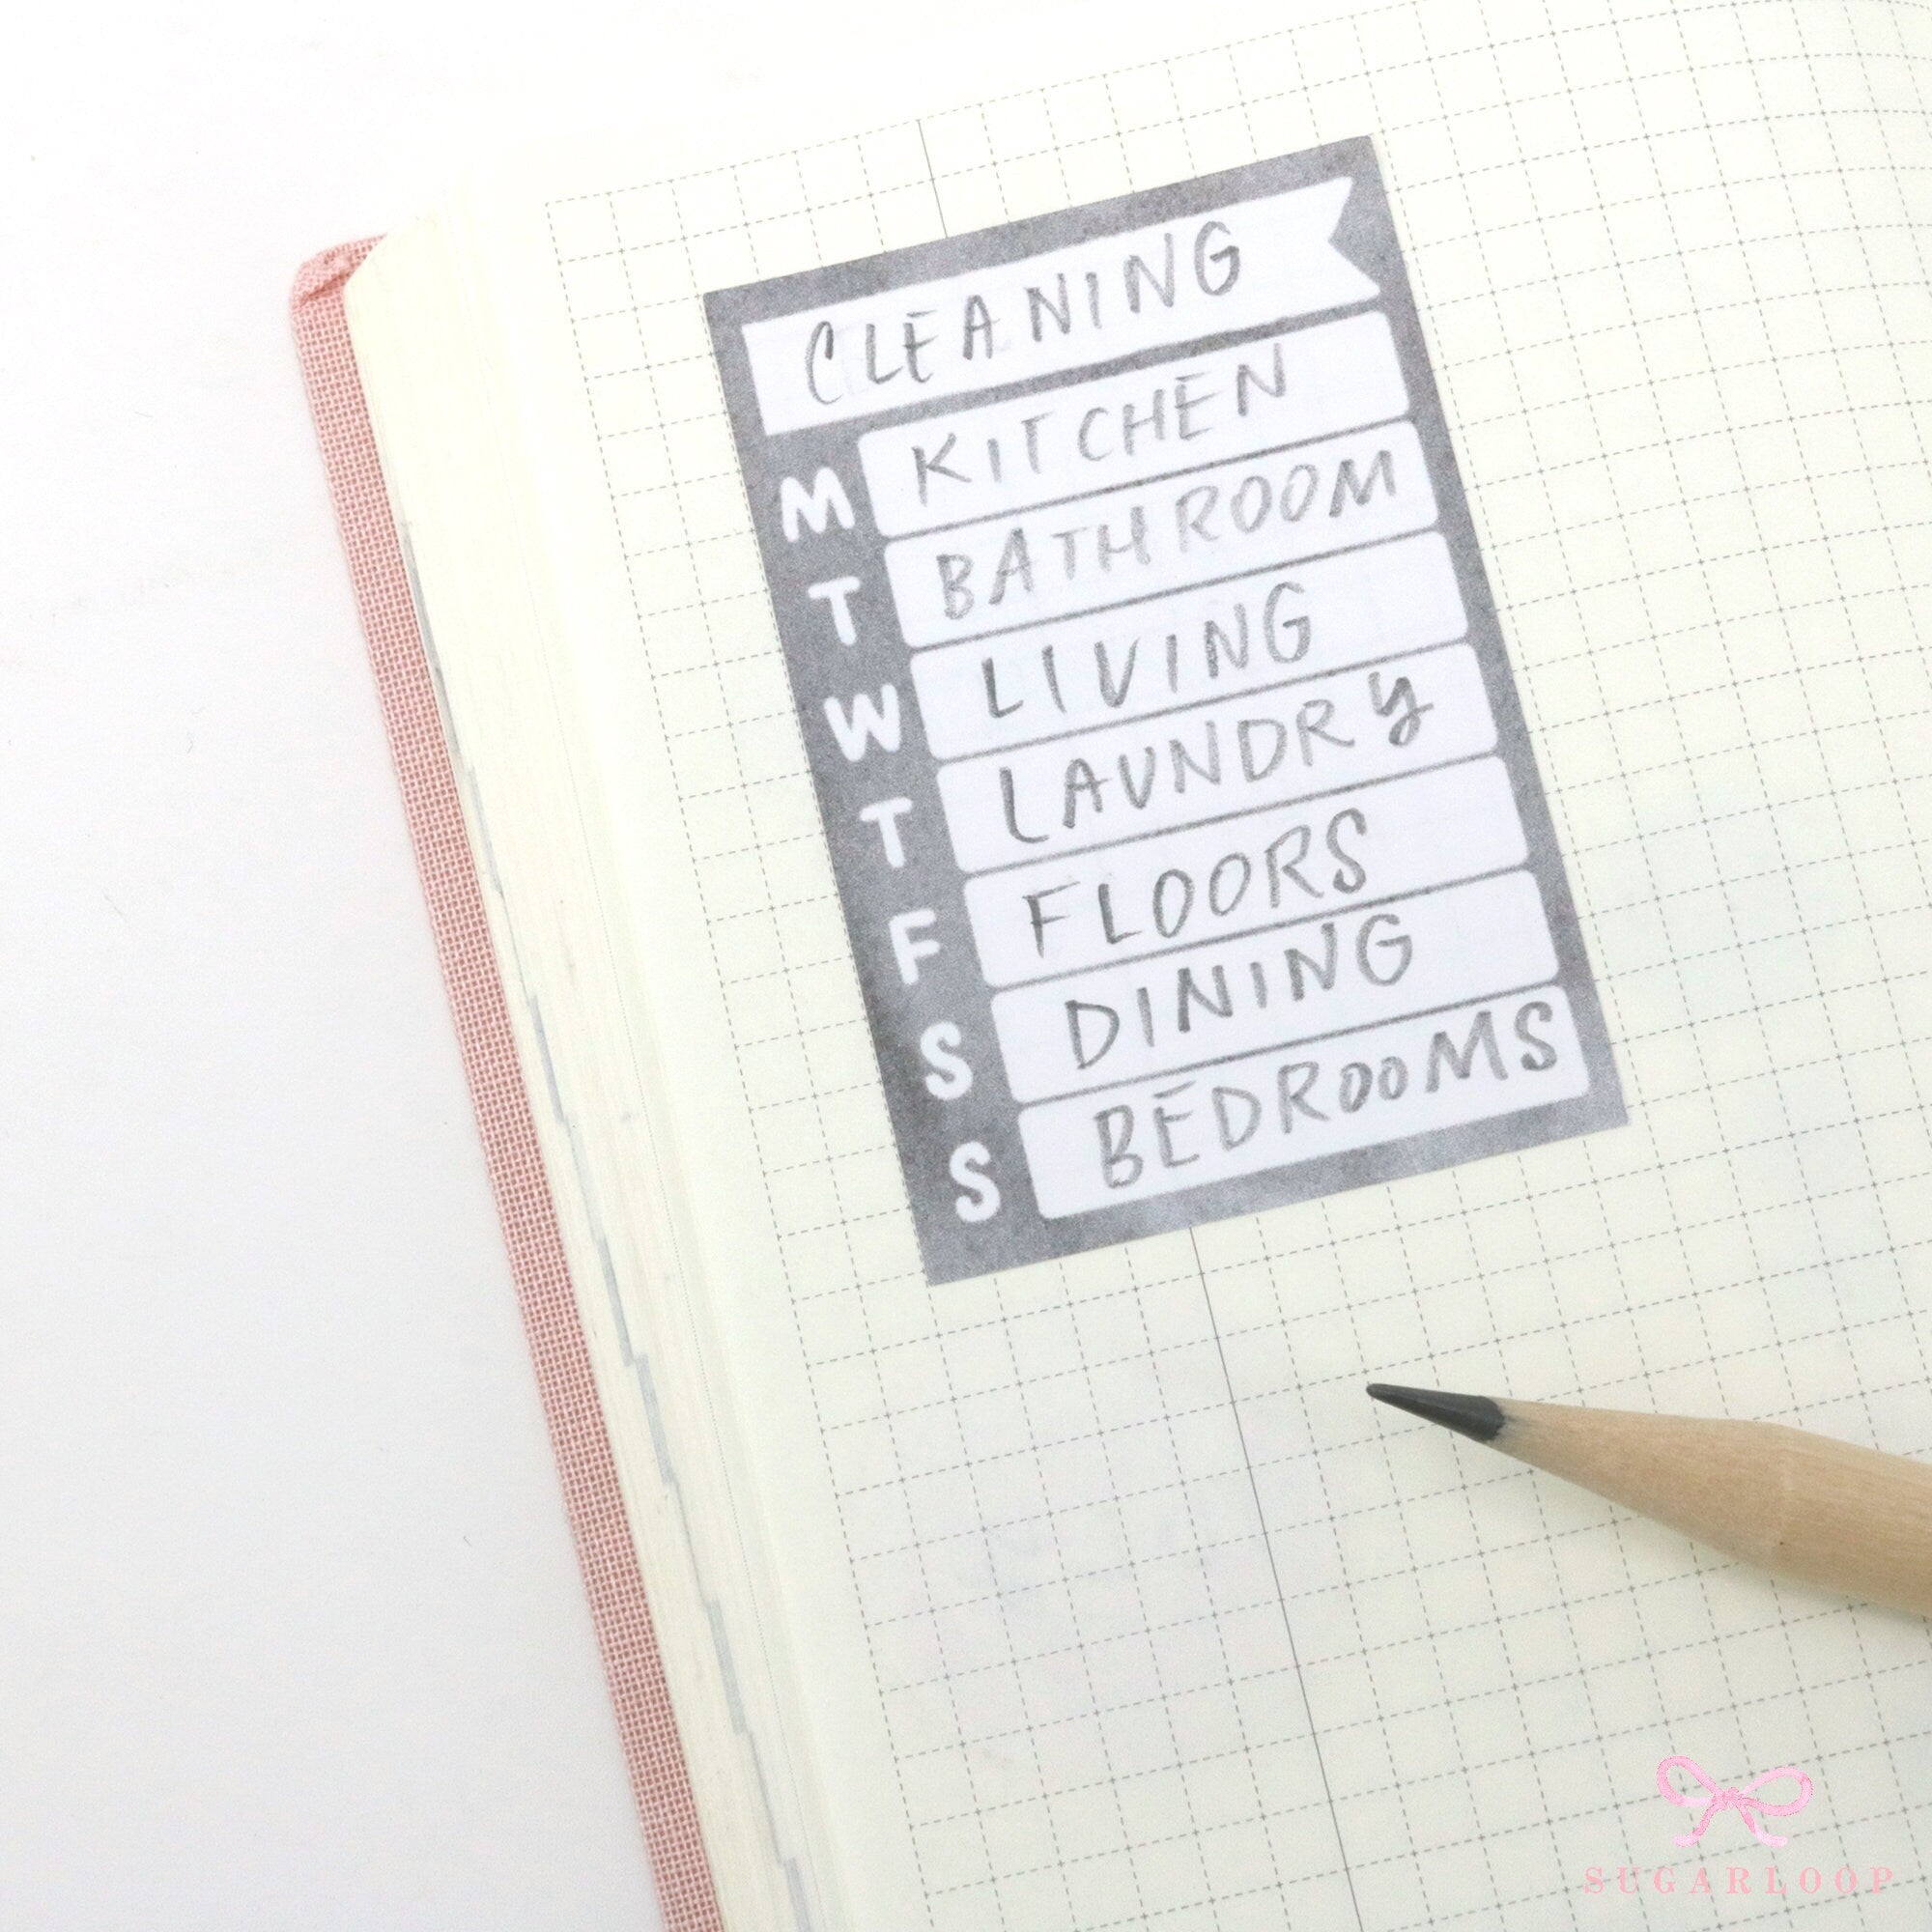 CLEANING
M KITCHEN
T BATHROOM
W LIVING
T LAUNDRY
F FLOORS
S DINING
S BEDROOMS
SUGARLOOP